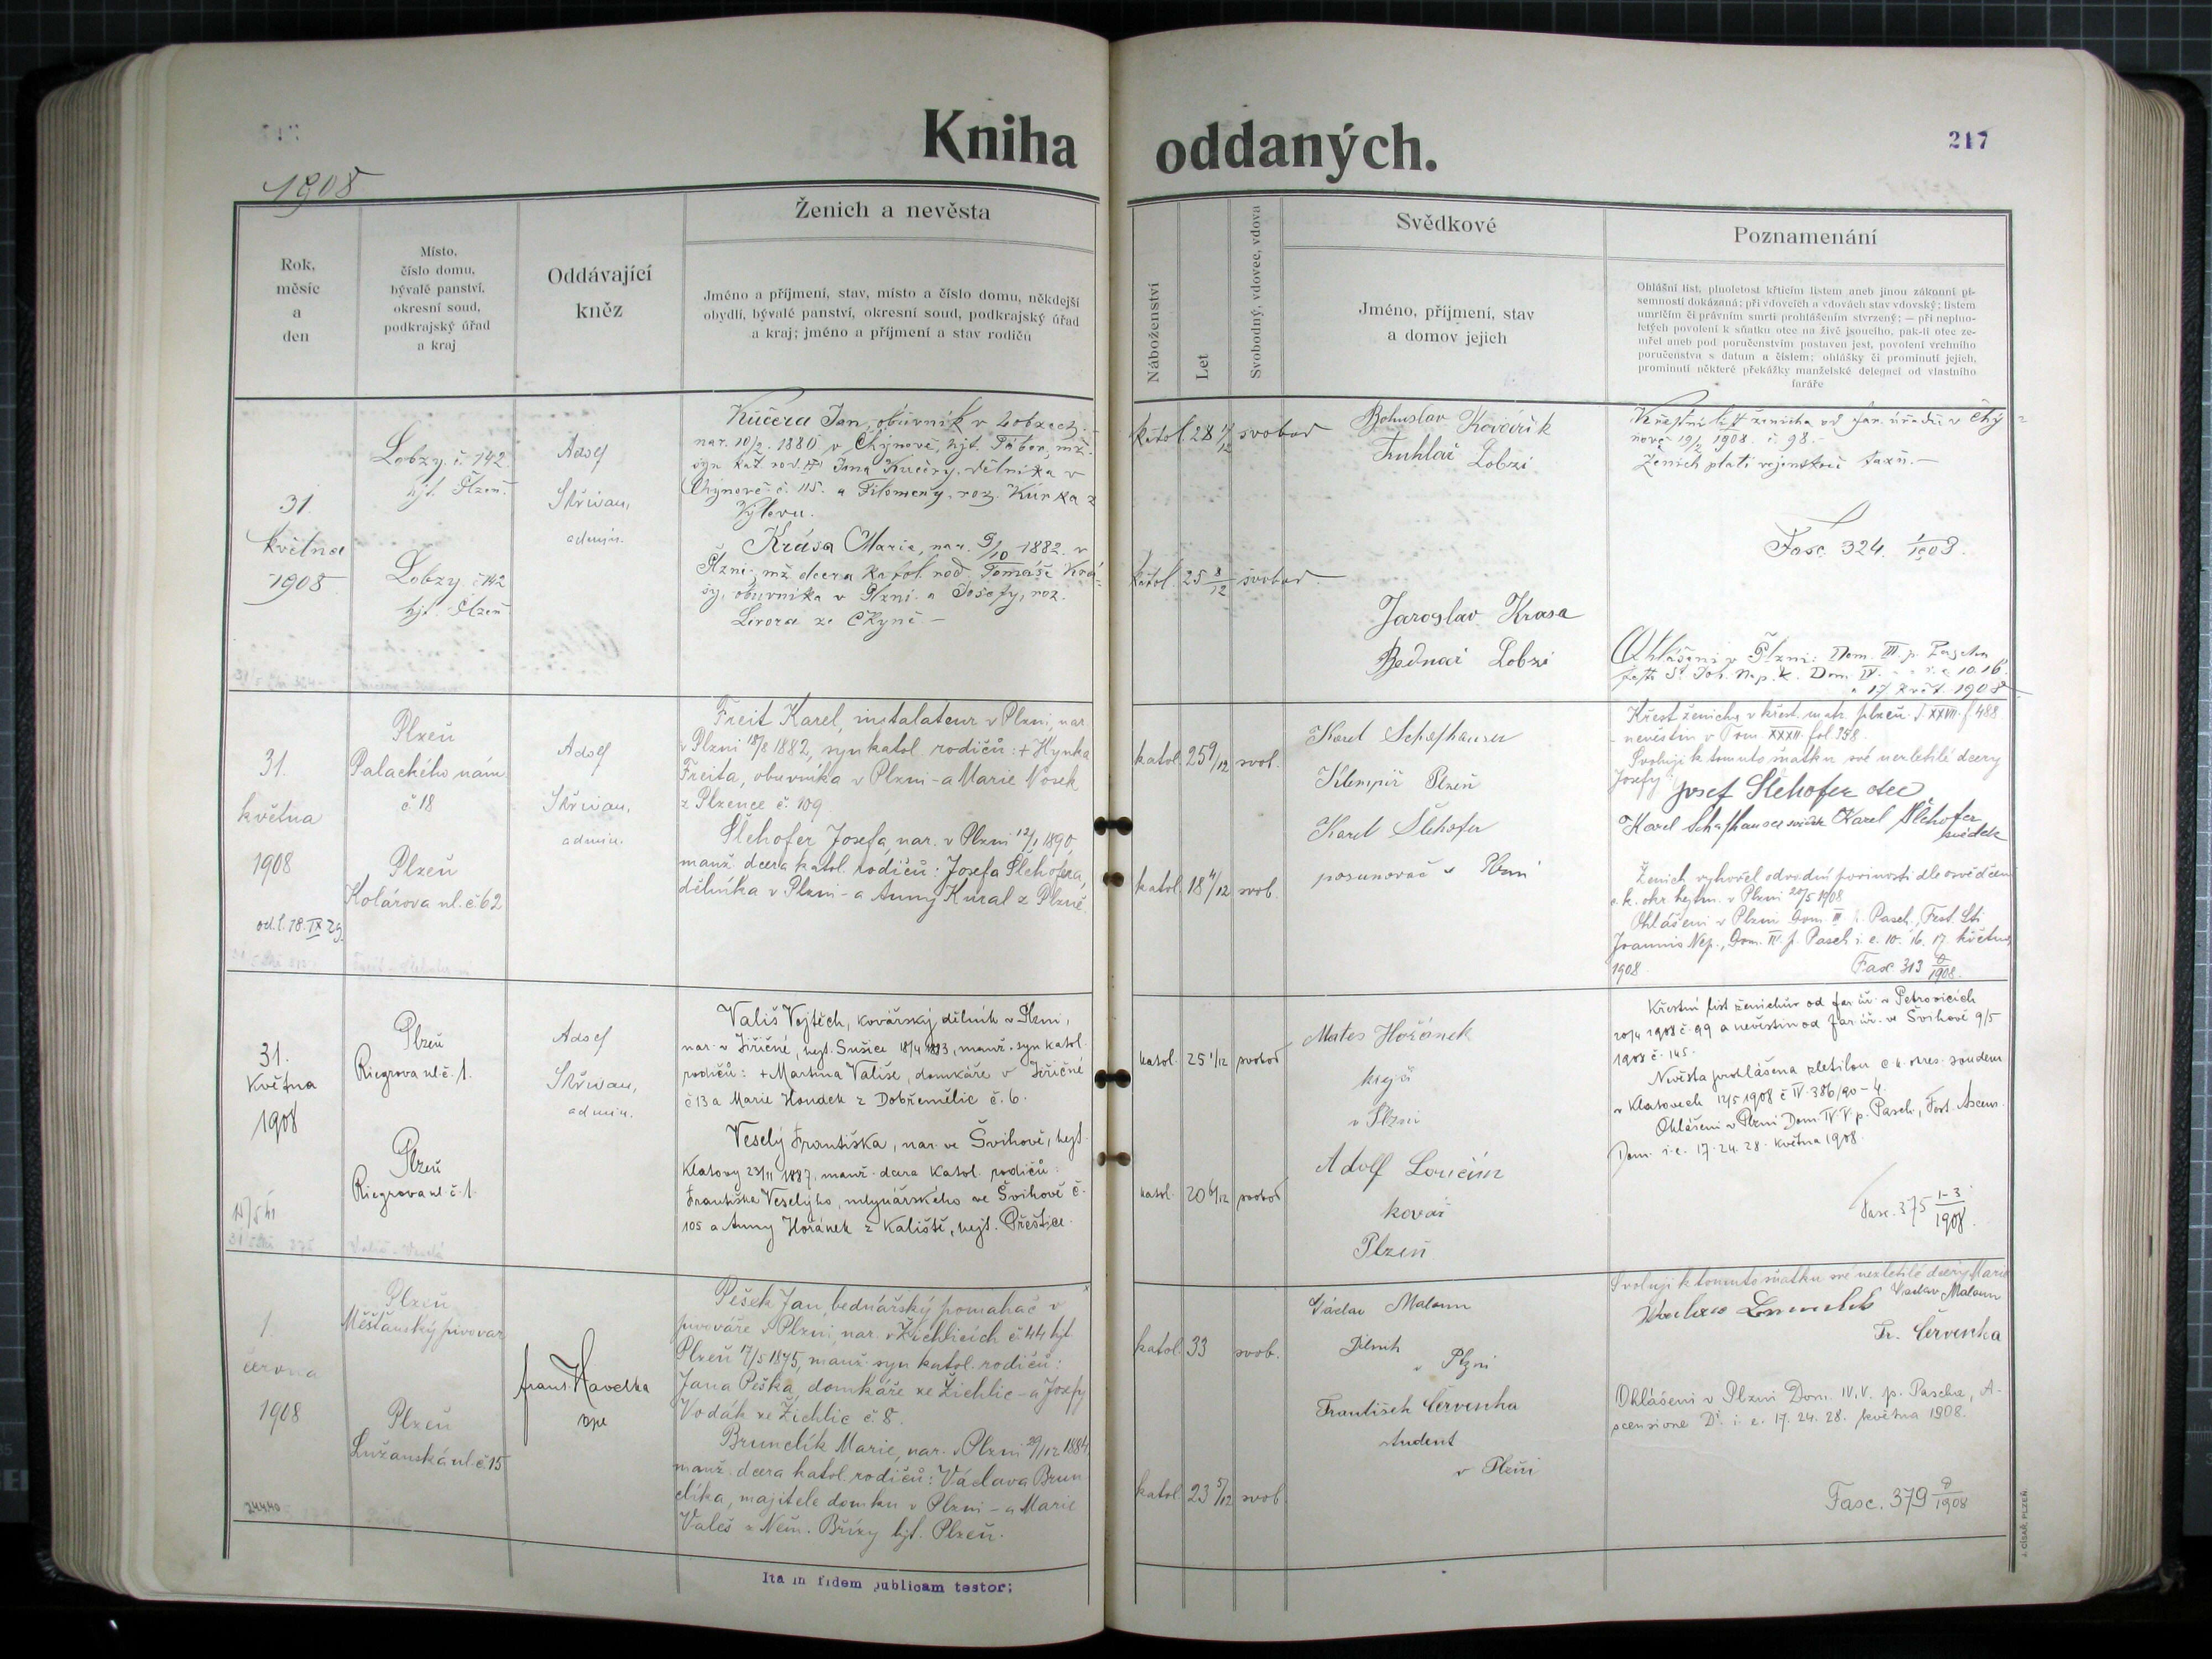 Kniha oddaných.
217
1908
Ženich a nevěsta
Svědkové
Poznamenání
Rok,
měsíc
a
den
Místo,
číslo domu,
bývalé panství,
okresní soud,
podkrajský úřad
a kraj
Oddávající
kněz
Jméno a příjmení, stav, místo a číslo domu, někdejší
obydlí, bývalé panství, okresní soud, podkrajský úřad
a kraj; jméno a příjmení a stav rodičů
Náboženství
Let
Svobodný, vdovec, vdova
Jméno, příjmení, stav
a domov jejich
Ohlášní list, plnoletost křticím listem aneb jinou zákonní pí-
semností dokázaná; při vdovcích a vdovách stav vdovský; listem
umrlčím či právním smrti prohlášením stvrzený; — při neplno-
letých povolení k sňatku otce na živě jsoucího, pak-li otec ze-
mřel aneb pod poručenstvím postaven jest, povolení vrchního
poručenstva s datum a číslem; ohlášky či prominutí jejich,
prominutí některé překážky manželské delegací od vlastního
faráře
31.
května
1908
Lobzy č. 142
hjt. Plzeň.
Lobzy č 142
hjt. Plzeň
Adolf
Skřivan,
admin.
Kučera Jan, obuvník v Lobzech.
nar. 10/2. 1880 v Chýnově, hjt. Tábor, mž.
syn kat. rod. Jana Kučery, dělníka v
Chýnově č. 115. a Filomeny, roz. Kůrka z
Krása Marie, nar. 9/10 1882. v
Plzni, mž dcera katol. rod. Tomáše Krá-
sy, obuvníka v Plzni a Josefy, roz.
katol. 28 svobod
katol. 25 8/12 svobod
Bohuslav Kovářík
Truhlař Lobzi
Jaroslav Krasa
Bednař Lobzi
nově 19/2 1908. č. 98.-
Ženich platí vojenskou taxu.-
Fasc. 324.
Ohlášeni v Plzni: Dom. III. p. Pascha
festo St. Joh. Nep. Dom. IV. 10. 16.
17 květ. 1908
31.
května
1908
od.l. 18. IX 29.
Plzeň
Palackého nám
č 18
Plzeň
Kolárova ul. č 62
Adolf
Skřivan,
admin.
Freit Karel, instalateur v Plzni nar.
v Plzni 18/8 1882, syn katol rodičů: + Hynka
Freita, obuvníka v Plzni - a Marie Nosek
z Plzence č. 109
Šlehofer Josefa, nar. v Plzni 12/1 1890,
manž. dcera katol. rodičů: Josefa Šlehofera,
dělníka v Plzni - a Anny Kural z Plzně.
katol. 25 9/12 svob.
katol. 18 4/12 svob.
Karel Schafhauser
Klempíř Plzeň
Karel Šlehofer
posunovač v Plzni
Křest ženicha v křest. matr. plzeň. T. XXVII. f 488
nevěstin v Tom. XXXII. fol. 358.
Svoluji k tomuto sňatku své nezletilé dcery
Josefy: Josef Šlehofer otec
Karel Schafhauser svědek Karel Šlehofer
svědek
Ženich vyhověl odvodní povinosti dle osvědčen
c. k. okr. hejtm. v Plzni 20/5 1908
Ohlášeni v Plzni Dom. III p. Pasch., Fest. Sti
Joannis Nep., Dom. IV. p. Pasch i. e. 10. 16. 17. května
1908.
Fasc. 313
31.
Května
1908
Plzeň
Riegrova ul. č. 1.
Plzeň
Riegrova ul. č. 1.
Adolf
Skřivan,
admin.
Vališ Vojtěch, kovářský dělník v Plzni,
nar. v Jiřičné, hejt. Sušice 18/4 1883, manž. syn katol.
rodičů: + Martina Vališe, domkáře v Jiřičné
č 13 a Marie Houdek z Dobřemělic č. 6.
Veselý Františka, nar. ve Švihově, hejt.
Klatovy 23/11 1887, manž. dcera katol. rodičů:
Františka Veselýho, mlynářského ve Švihově č.
105 a Anny Hořánek z Kaliště, hejt. Přeštice.
katol. 25 1/12 svobod
katol. 20 6/12 svobod
Mates Hořánek
krejčí
v Plzni
Adolf Loučím
kovář
Plzeň
Křestní list ženichův od far. úř. v Petrovicích
20/4 1908 č. 99 a nevěstin od far. úř. ve Švihově 9/5
1908 č. 145.
Nevěsta prohlášena zletilou c. k. okres. soudem
v Klatovech 12/5 1908 č IV. 386/90 - 4.
Ohlášeni v Plzni Dom. IV. V. p. Pasch., Fest. Ascens.
Dom. i. e. 17. 24. 28. května 1908.
Fasc. 375 1-3/1908.
1.
června
1908
24440
Plzeň
Měšťanský pivovar
Plzeň
Lužanská ul. č 15
frant. Havelka
Pešek Jan, bednářský pomahač v
pivováře v Plzni, nar. v Žichlicích č. 44 hjt.
Plzeň 17/5 1875, manž. syn katol. rodičů:
Jana Peška, domkáře ze Žichlic - a Josefy
Vodák ze Žichlic č. 8.
Brunclík Marie, nar. v Plzni 29/12 1884,
manž. dcera katol. rodičů: Václava Brun
clíka, majitele domku v Plzni - a Marie
Valeš z Něm. Břízy hjt. Plzeň.
katol. 33 svob.
katol. 23 5/12 svob.
Václav Malaun
Dělník
v Plzni
František Červenka
student
v Plzni
Svoluji k tomuto sňatku své nezletilé dcery Marie
Václav Malaun
Fr. Červenka
Ohlášeni v Plzni Dom. IV. V. p. Pascha, A-
scensione Di. i. e. 17. 24. 28. května 1908.
Fasc. 379
Ita in fidem publicam testor;
J. CÍSAŘ, PLZEŇ.